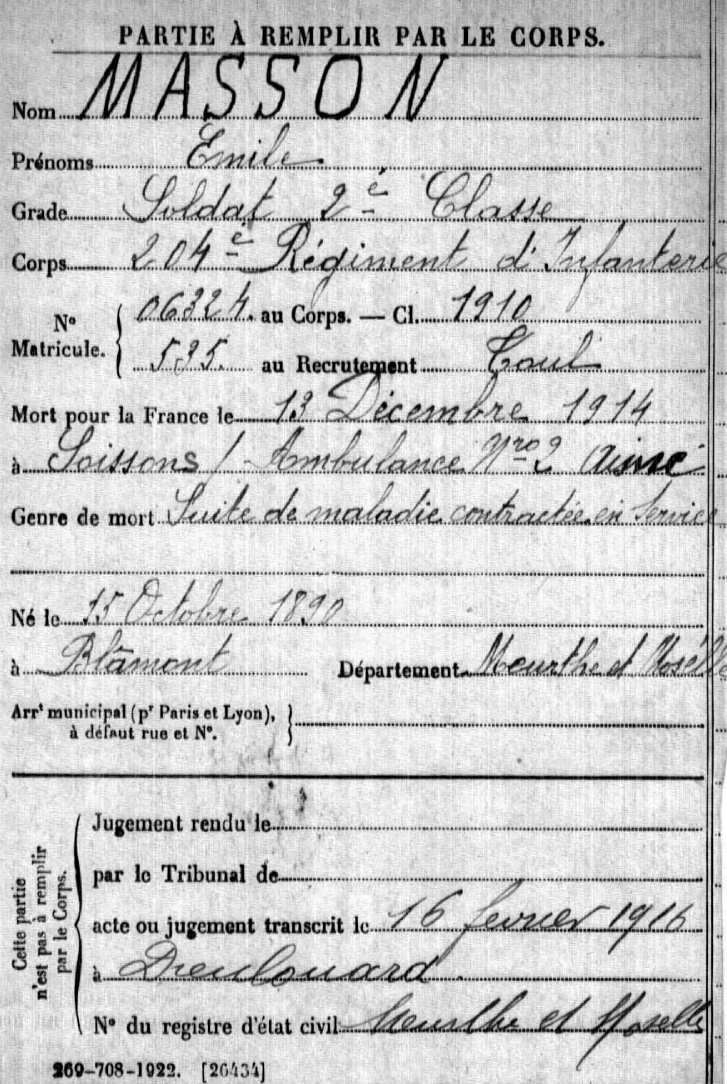 PARTIE À REMPLIR PAR LE CORPS.
Nom MASSON
Prénoms Emile
Grade Soldat 2è Classe
Corps 204è Régiment d'Infanterie
N° Matricule. { 06324. au Corps. — Cl. 1910
595. au Recrutement Toul
Mort pour la France le 13 Décembre 1914
à Soissons / Ambulance Nro 2 Aisne
Genre de mort Suite de maladie contractée en Service
Né le 15 Octobre 1890
à Blâmont Département Meurthe et Moselle
Arrt municipal (pr Paris et Lyon), }
à défaut rue et N°.
Cette partie n'est pas à remplir par le Corps.
Jugement rendu le
par le Tribunal de
acte ou jugement transcrit le 16 fevrier 1916
à Dieulouard.
N° du registre d'état civil Meurthe et Moselle
269-708-1922. [26434]